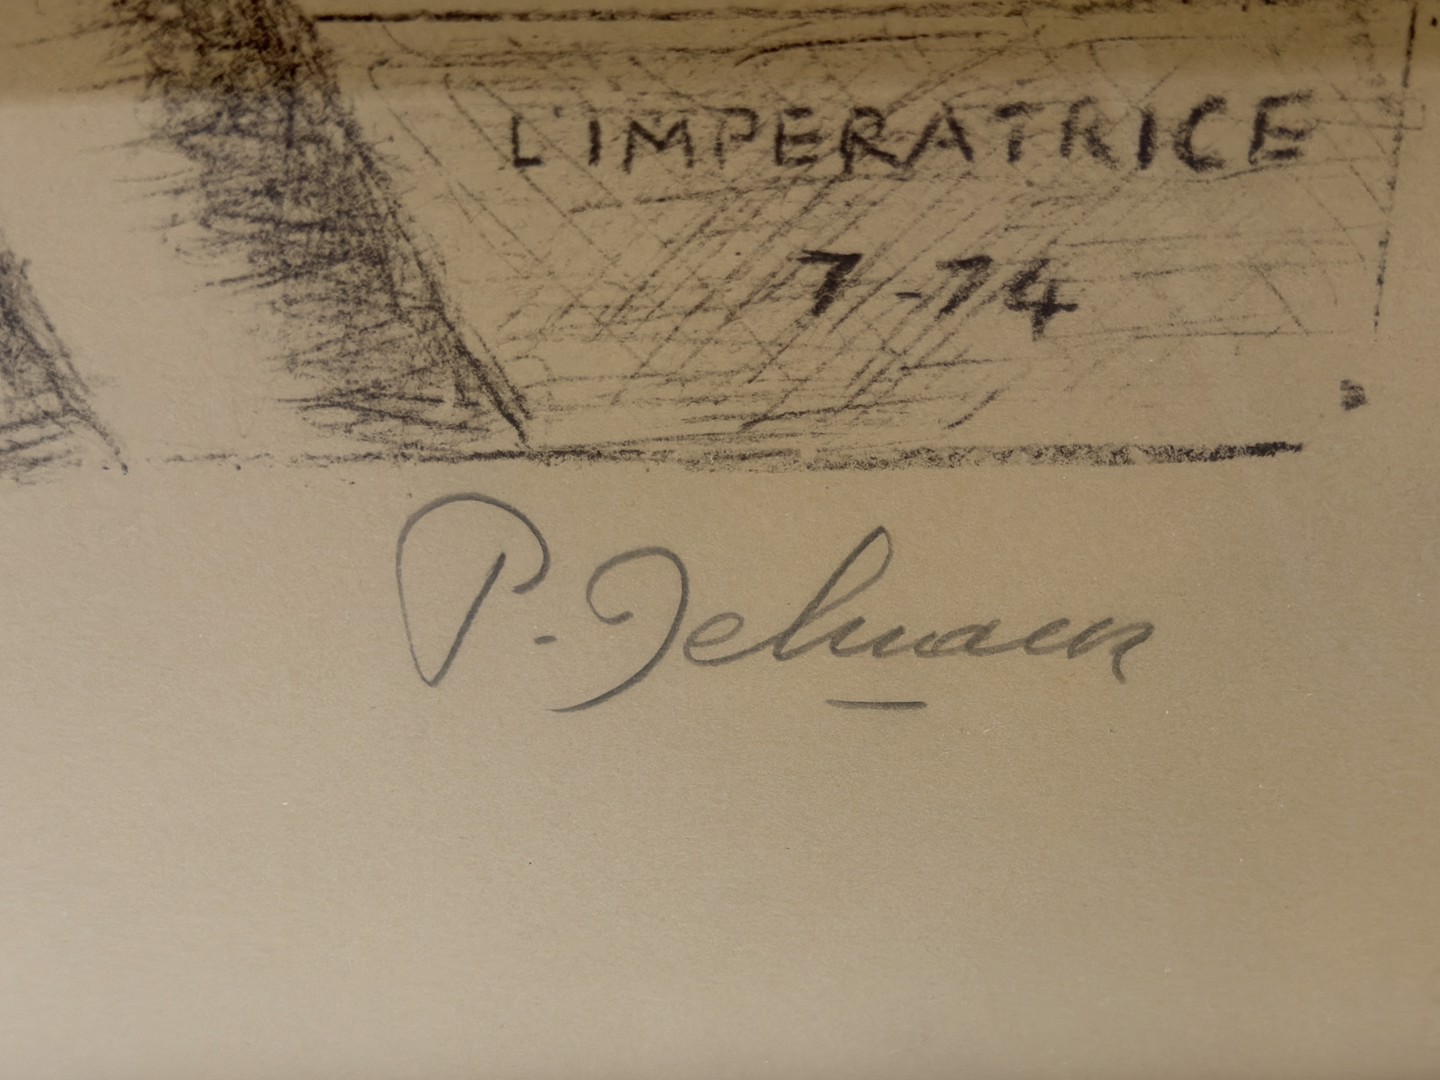 L'IMPERATRICE
7-74
P. Delvaux